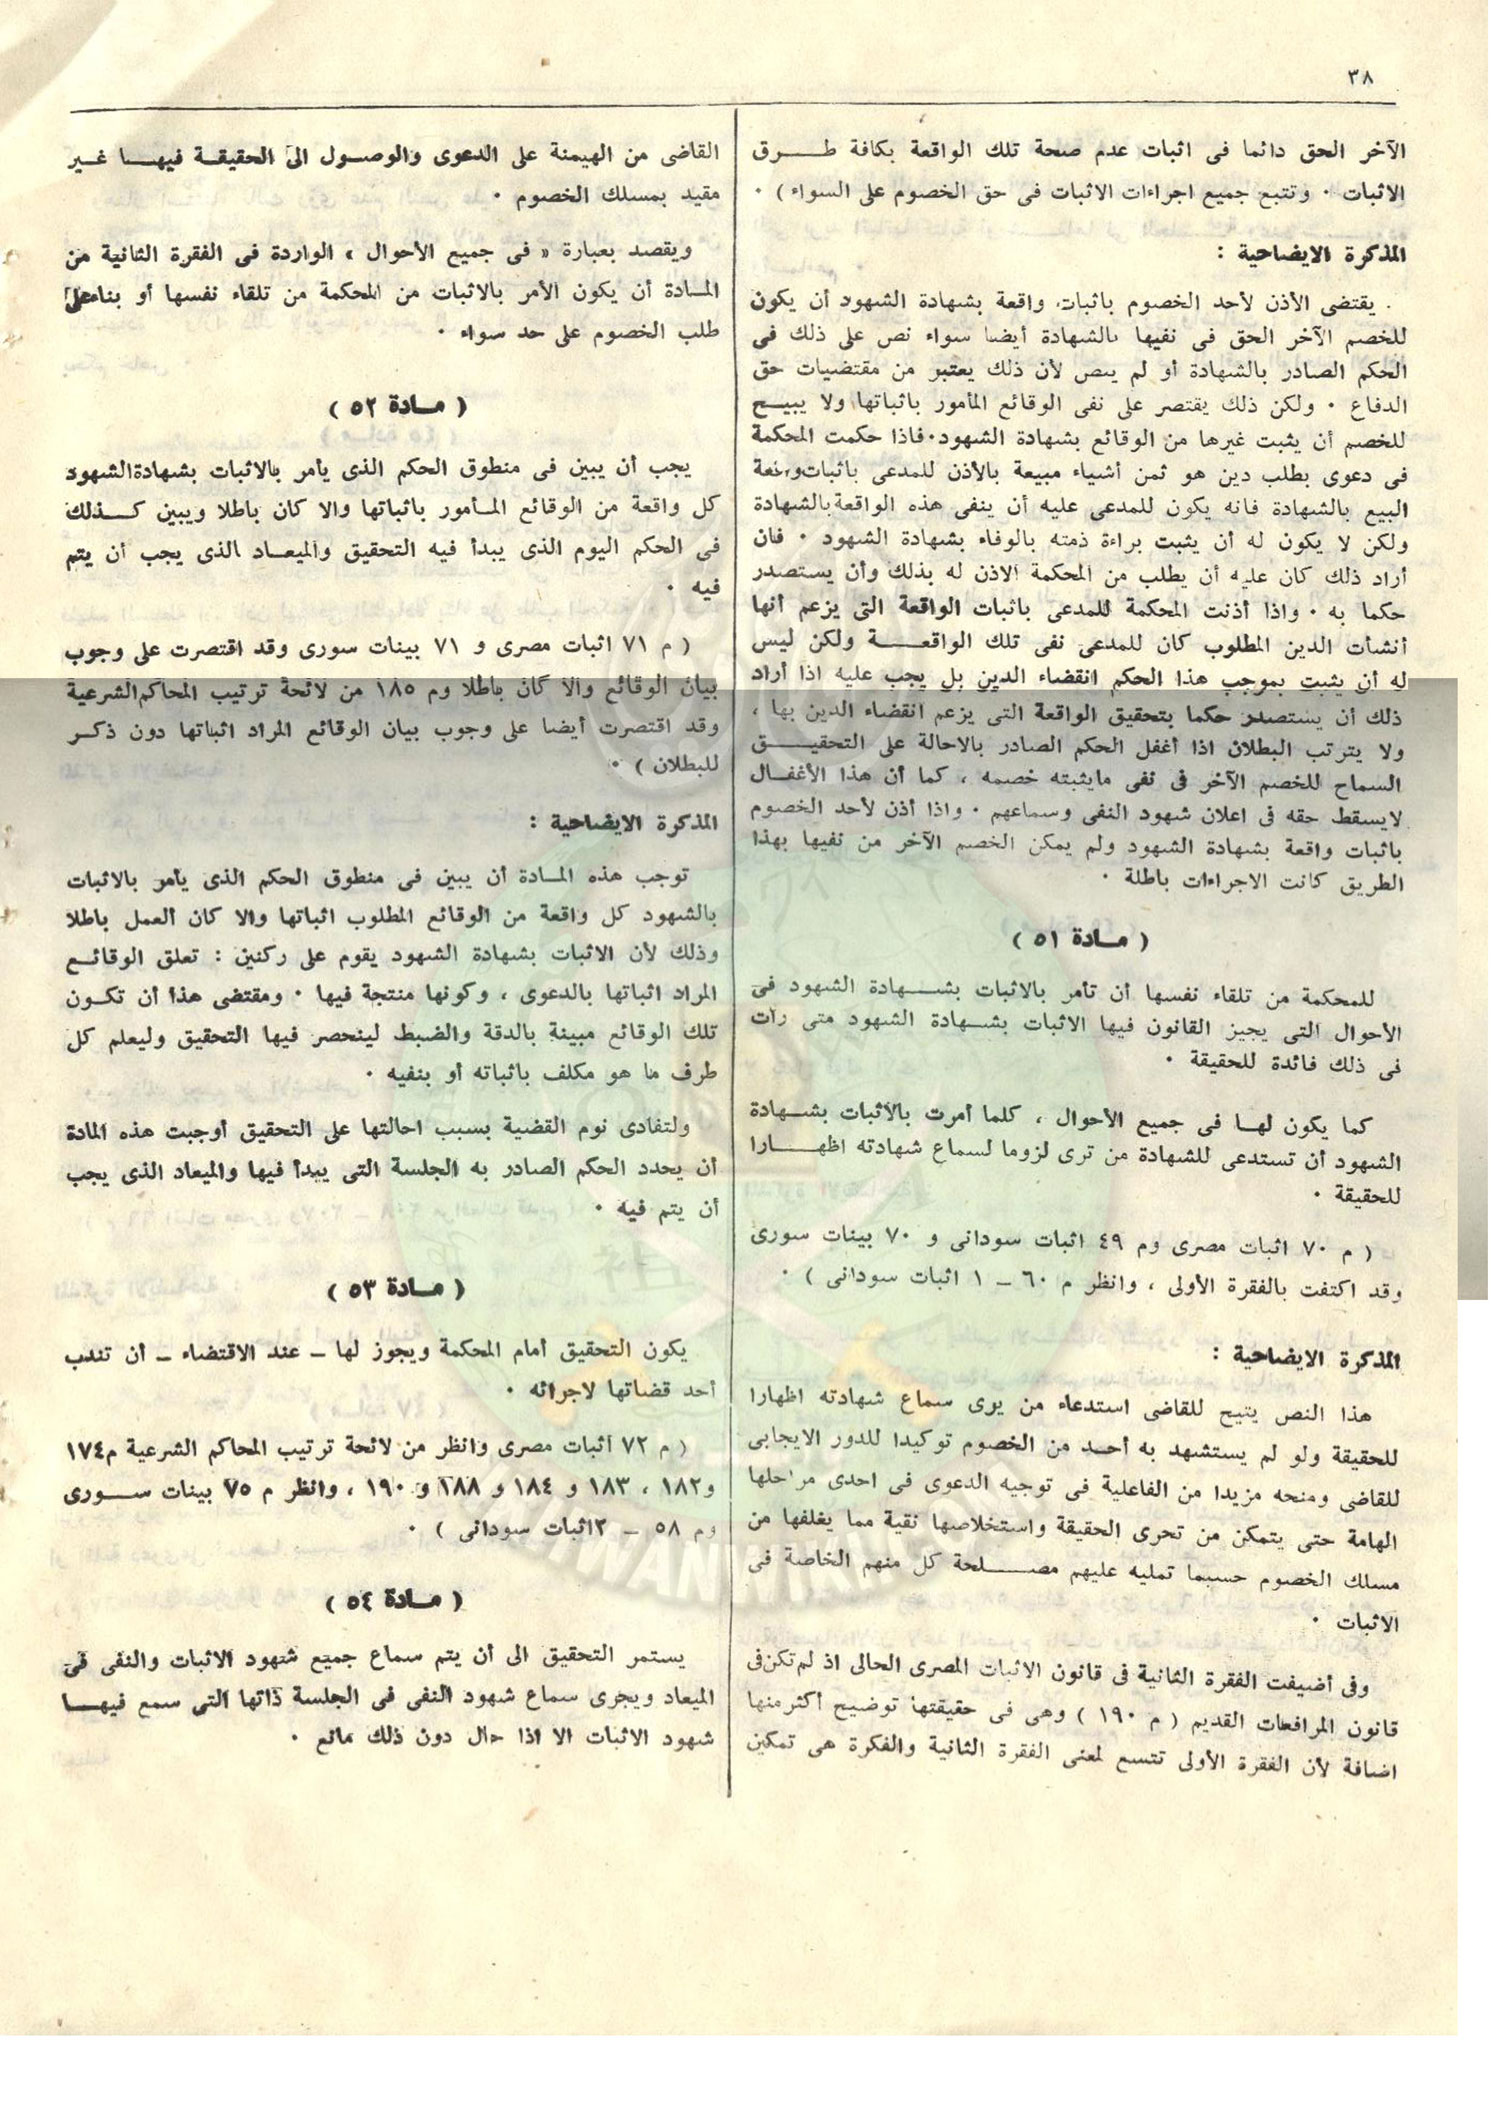 ٣٨
الآخر الحق دائما فى اثبات عدم صحة تلك الواقعة بكافة طرق
الاثبات ٠ وتتبع جميع اجراءات الاثبات فى حق الخصوم على السواء ) ٠
المذكرة الايضاحية :
يقتضى الأذن لأحد الخصوم باثبات واقعة بشهادة الشهود أن يكون
للخصم الآخر الحق فى نفيها بالشهادة أيضا سواء نص على ذلك فى
الحكم الصادر بالشهادة أو لم ينص لأن ذلك يعتبر من مقتضيات حق
الدفاع ٠ ولكن ذلك يقتصر على نفى الوقائع المأمور باثباتها ولا يبيح
للخصم أن يثبت غيرها من الوقائع بشهادة الشهود٠ فاذا حكمت المحكمة
فى دعوى بطلب دين هو ثمن أشياء مبيعة بالأذن للمدعى باثبات واقعة
البيع بالشهادة فانه يكون للمدعى عليه أن ينفى هذه الواقعة بالشهادة
ولكن لا يكون له أن يثبت براءة ذمته بالوفاء بشهادة الشهود ٠ فان
أراد ذلك كان عليه أن يطلب من المحكمة الاذن له بذلك وأن يستصدر
حكما به ٠ واذا أذنت المحكمة للمدعى باثبات الواقعة التى يزعم أنها
أنشأت الدين المطلوب كان للمدعى نفى تلك الواقعة ولكن ليس
له أن يثبت بموجب هذا الحكم انقضاء الدين بل يجب عليه اذا أراد
ذلك أن يستصدر حكما بتحقيق الواقعة التى يزعم انقضاء الدين بها ،
ولا يترتب البطلان اذا أغفل الحكم الصادر بالاحالة على التحقيق
السماح للخصم الآخر فى نفى مايثبته خصمه ، كما أن هذا الأغفال
لايسقط حقه فى اعلان شهود النفى وسماعهم ٠ واذا أذن لأحد الخصوم
باثبات واقعة بشهادة الشهود ولم يمكن الخصم الآخر من نفيها بهذا
الطريق كانت الاجراءات باطلة ٠
( مادة ٥١ )
للمحكمة من تلقاء نفسها أن تأمر بالاثبات بشهادة الشهود فى
الأحوال التى يجيز القانون فيها الاثبات بشهادة الشهود متى رأت
فى ذلك فائدة للحقيقة ٠
كما يكون لها فى جميع الأحوال ، كلما أمرت بالأثبات بشهادة
الشهود أن تستدعى للشهادة من ترى لزوما لسماع شهادته اظهارا
للحقيقة ٠
( م ٧٠ اثبات مصرى وم ٤٩ اثبات سودانى و ٧٠ بينات سورى
وقد اكتفت بالفقرة الأولى ، وانظر م ٦٠ ـ ١ اثبات سودانى ) ٠
المذكرة الايضاحية :
هذا النص يتيح للقاضى استدعاء من يرى سماع شهادته اظهارا
للحقيقة ولو لم يستشهد به أحد من الخصوم توكيدا للدور الايجابى
للقاضى ومنحه مزيدا من الفاعلية فى توجيه الدعوى فى احدى مراحلها
الهامة حتى يتمكن من تحرى الحقيقة واستخلاصها نقية مما يغلفها من
مسلك الخصوم حسبما تمليه عليهم مصلحة كل منهم الخاصة فى
الاثبات ٠
وفى أضيفت الفقرة الثانية فى قانون الاثبات المصرى الحالى اذ لم تكن فى
قانون المرافعات القديم ( م ١٩٠ ) وهى فى حقيقتها توضيح أكثر منها
اضافة لأن الفقرة الأولى تتسع لمعنى الفقرة الثانية والفكرة هى تمكين
القاضى من الهيمنة على الدعوى والوصول الى الحقيقة فيها غير
مقيد بمسلك الخصوم ٠
ويقصد بعبارة « فى جميع الأحوال » الواردة فى الفقرة الثانية من
المادة أن يكون الأمر بالاثبات من المحكمة من تلقاء نفسها أو بناء على
طلب الخصوم على حد سواء ٠
( مادة ٥٢ )
يجب أن يبين فى منطوق الحكم الذى يأمر بالاثبات بشهادة الشهود
كل واقعة من الوقائع المأمور باثباتها والا كان باطلا ويبين كذلك
فى الحكم اليوم الذى يبدأ فيه التحقيق والميعاد الذى يجب أن يتم
فيه ٠
( م ٧١ اثبات مصرى و ٧١ بينات سورى وقد اقتصرت على وجوب
بيان الوقائع والا كان باطلا وم ١٨٥ من لائحة ترتيب المحاكم الشرعية
وقد اقتصرت أيضا على وجوب بيان الوقائع المراد اثباتها دون ذكر
للبطلان ) ٠
المذكرة الايضاحية :
توجب هذه المادة أن يبين فى منطوق الحكم الذى يأمر بالاثبات
بالشهود كل واقعة من الوقائع المطلوب اثباتها والا كان العمل باطلا
وذلك لأن الاثبات بشهادة الشهود يقوم على ركنين : تعلق الوقائع
المراد اثباتها بالدعوى ، وكونها منتجة فيها ٠ ومقتضى هذا أن تكون
تلك الوقائع مبينة بالدقة والضبط لينحصر فيها التحقيق وليعلم كل
طرف ما هو مكلف باثباته أو بنفيه ٠
ولتفادى نوم القضية بسبب احالتها على التحقيق أوجبت هذه المادة
أن يحدد الحكم الصادر به الجلسة التى يبدأ فيها والميعاد الذى يجب
أن يتم فيه ٠
( مادة ٥٣ )
يكون التحقيق أمام المحكمة ويجوز لها ـ عند الاقتضاء ـ أن تندب
أحد قضاتها لاجرائه ٠
( م ٧٢ أثبات مصرى وانظر من لائحة ترتيب المحاكم الشرعية م١٧٤
و١٨٢ ، ١٨٣ و ١٨٤ و ١٨٨ و ١٩٠ ، وانظر م ٧٥ بينات سورى
وم ٥٨ ـ ٢اثبات سودانى ) ٠
( مادة ٥٤ )
يستمر التحقيق الى أن يتم سماع جميع شهود الاثبات والنفى فى
الميعاد ويجرى سماع شهود النفى فى الجلسة ذاتها التى سمع فيها
شهود الاثبات الا اذا حال دون ذلك مانع ٠